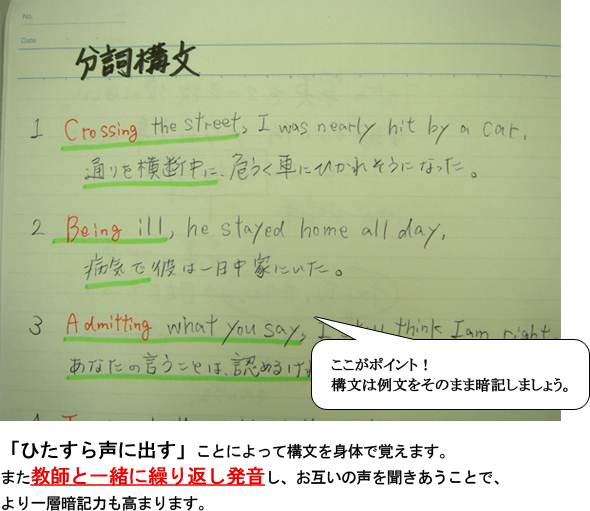 No.
Date
分詞構文
1 Crossing the street, I was nearly hit by a car.
通りを横断中に、危うく車にひかれそうになった。
2 Being ill, he stayed home all day.
病気で彼は一日中家にいた。
3 Admitting what you say, I still think I am right.
あなたの言うことは、認めるけ
ここがポイント！
構文は例文をそのまま暗記しましょう。
「ひたすら声に出す」ことによって構文を身体で覚えます。
また教師と一緒に繰り返し発音し、お互いの声を聞きあうことで、
より一層暗記力も高まります。